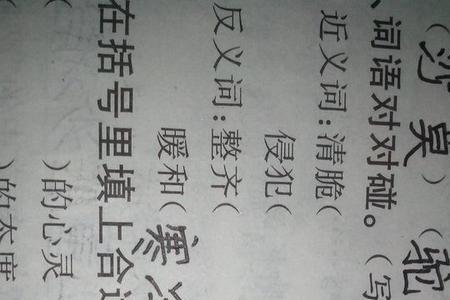 （沙 昊）（驼
、词语对对碰。（写
近义词：清脆（
侵犯（
反义词：整齐（
暖和（寒
在括号里填上合适
）的心灵
）的态度